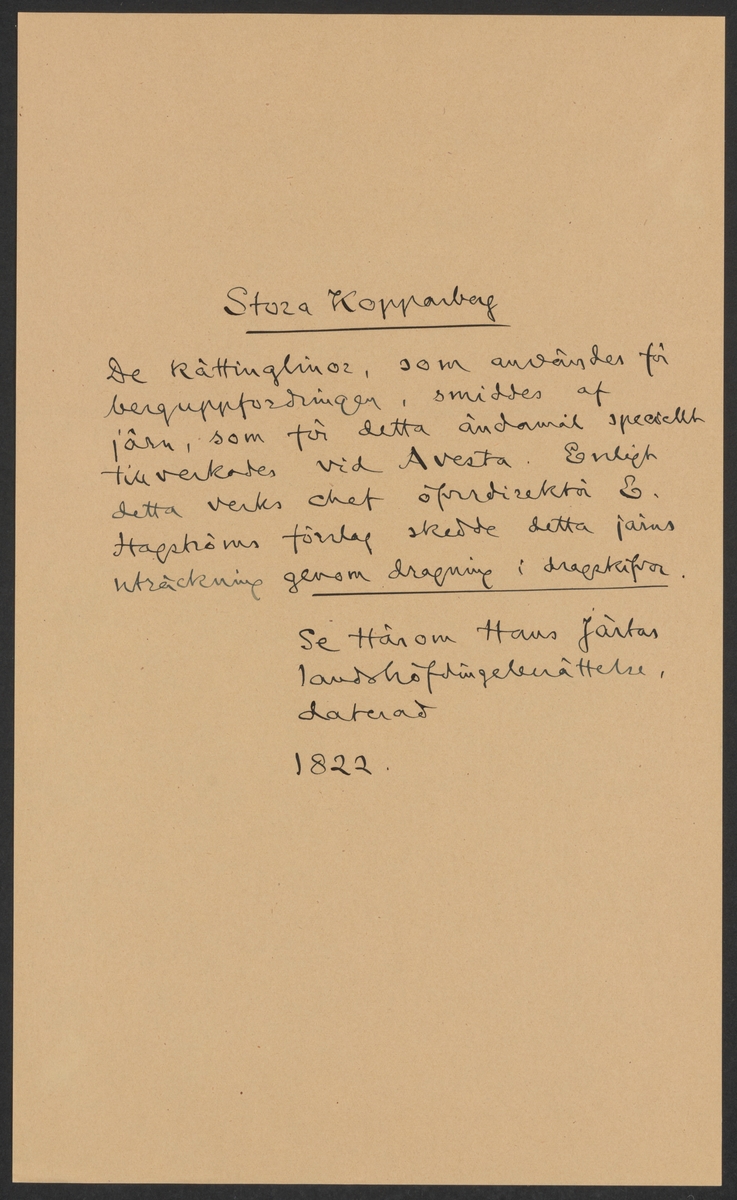 Stora Kopparberg
De kättinglinor, som användes för
berguppfordringen, smiddes af
järn, som för detta ändamål speciellt
tillverkades vid Avesta. Enligt
detta verks chef öfverdirektör E.
Hagströms förslag skedde detta järns
uträckning genom dragning i dragskifvor.
Se härom Hans Järtas
landshöfdingeberättelse,
daterad
1822.